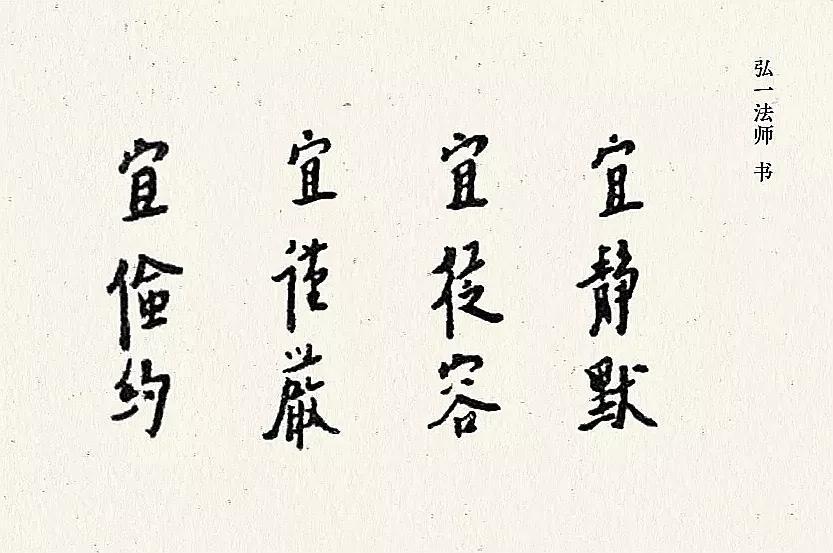 弘一法师 书
宜静默
宜從容
宜谨嚴
宜儉约